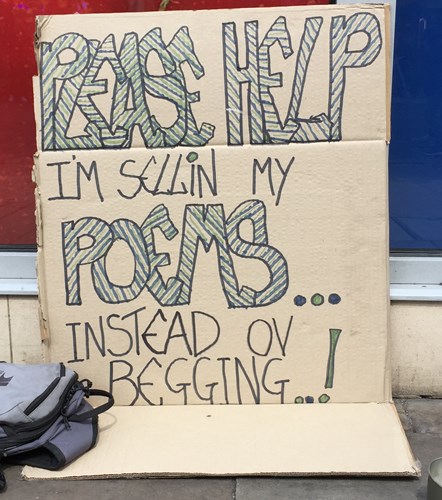 PLEASE HELP
I'M SELLIN MY
POEMS...
INSTEAD OV
BEGGING...!